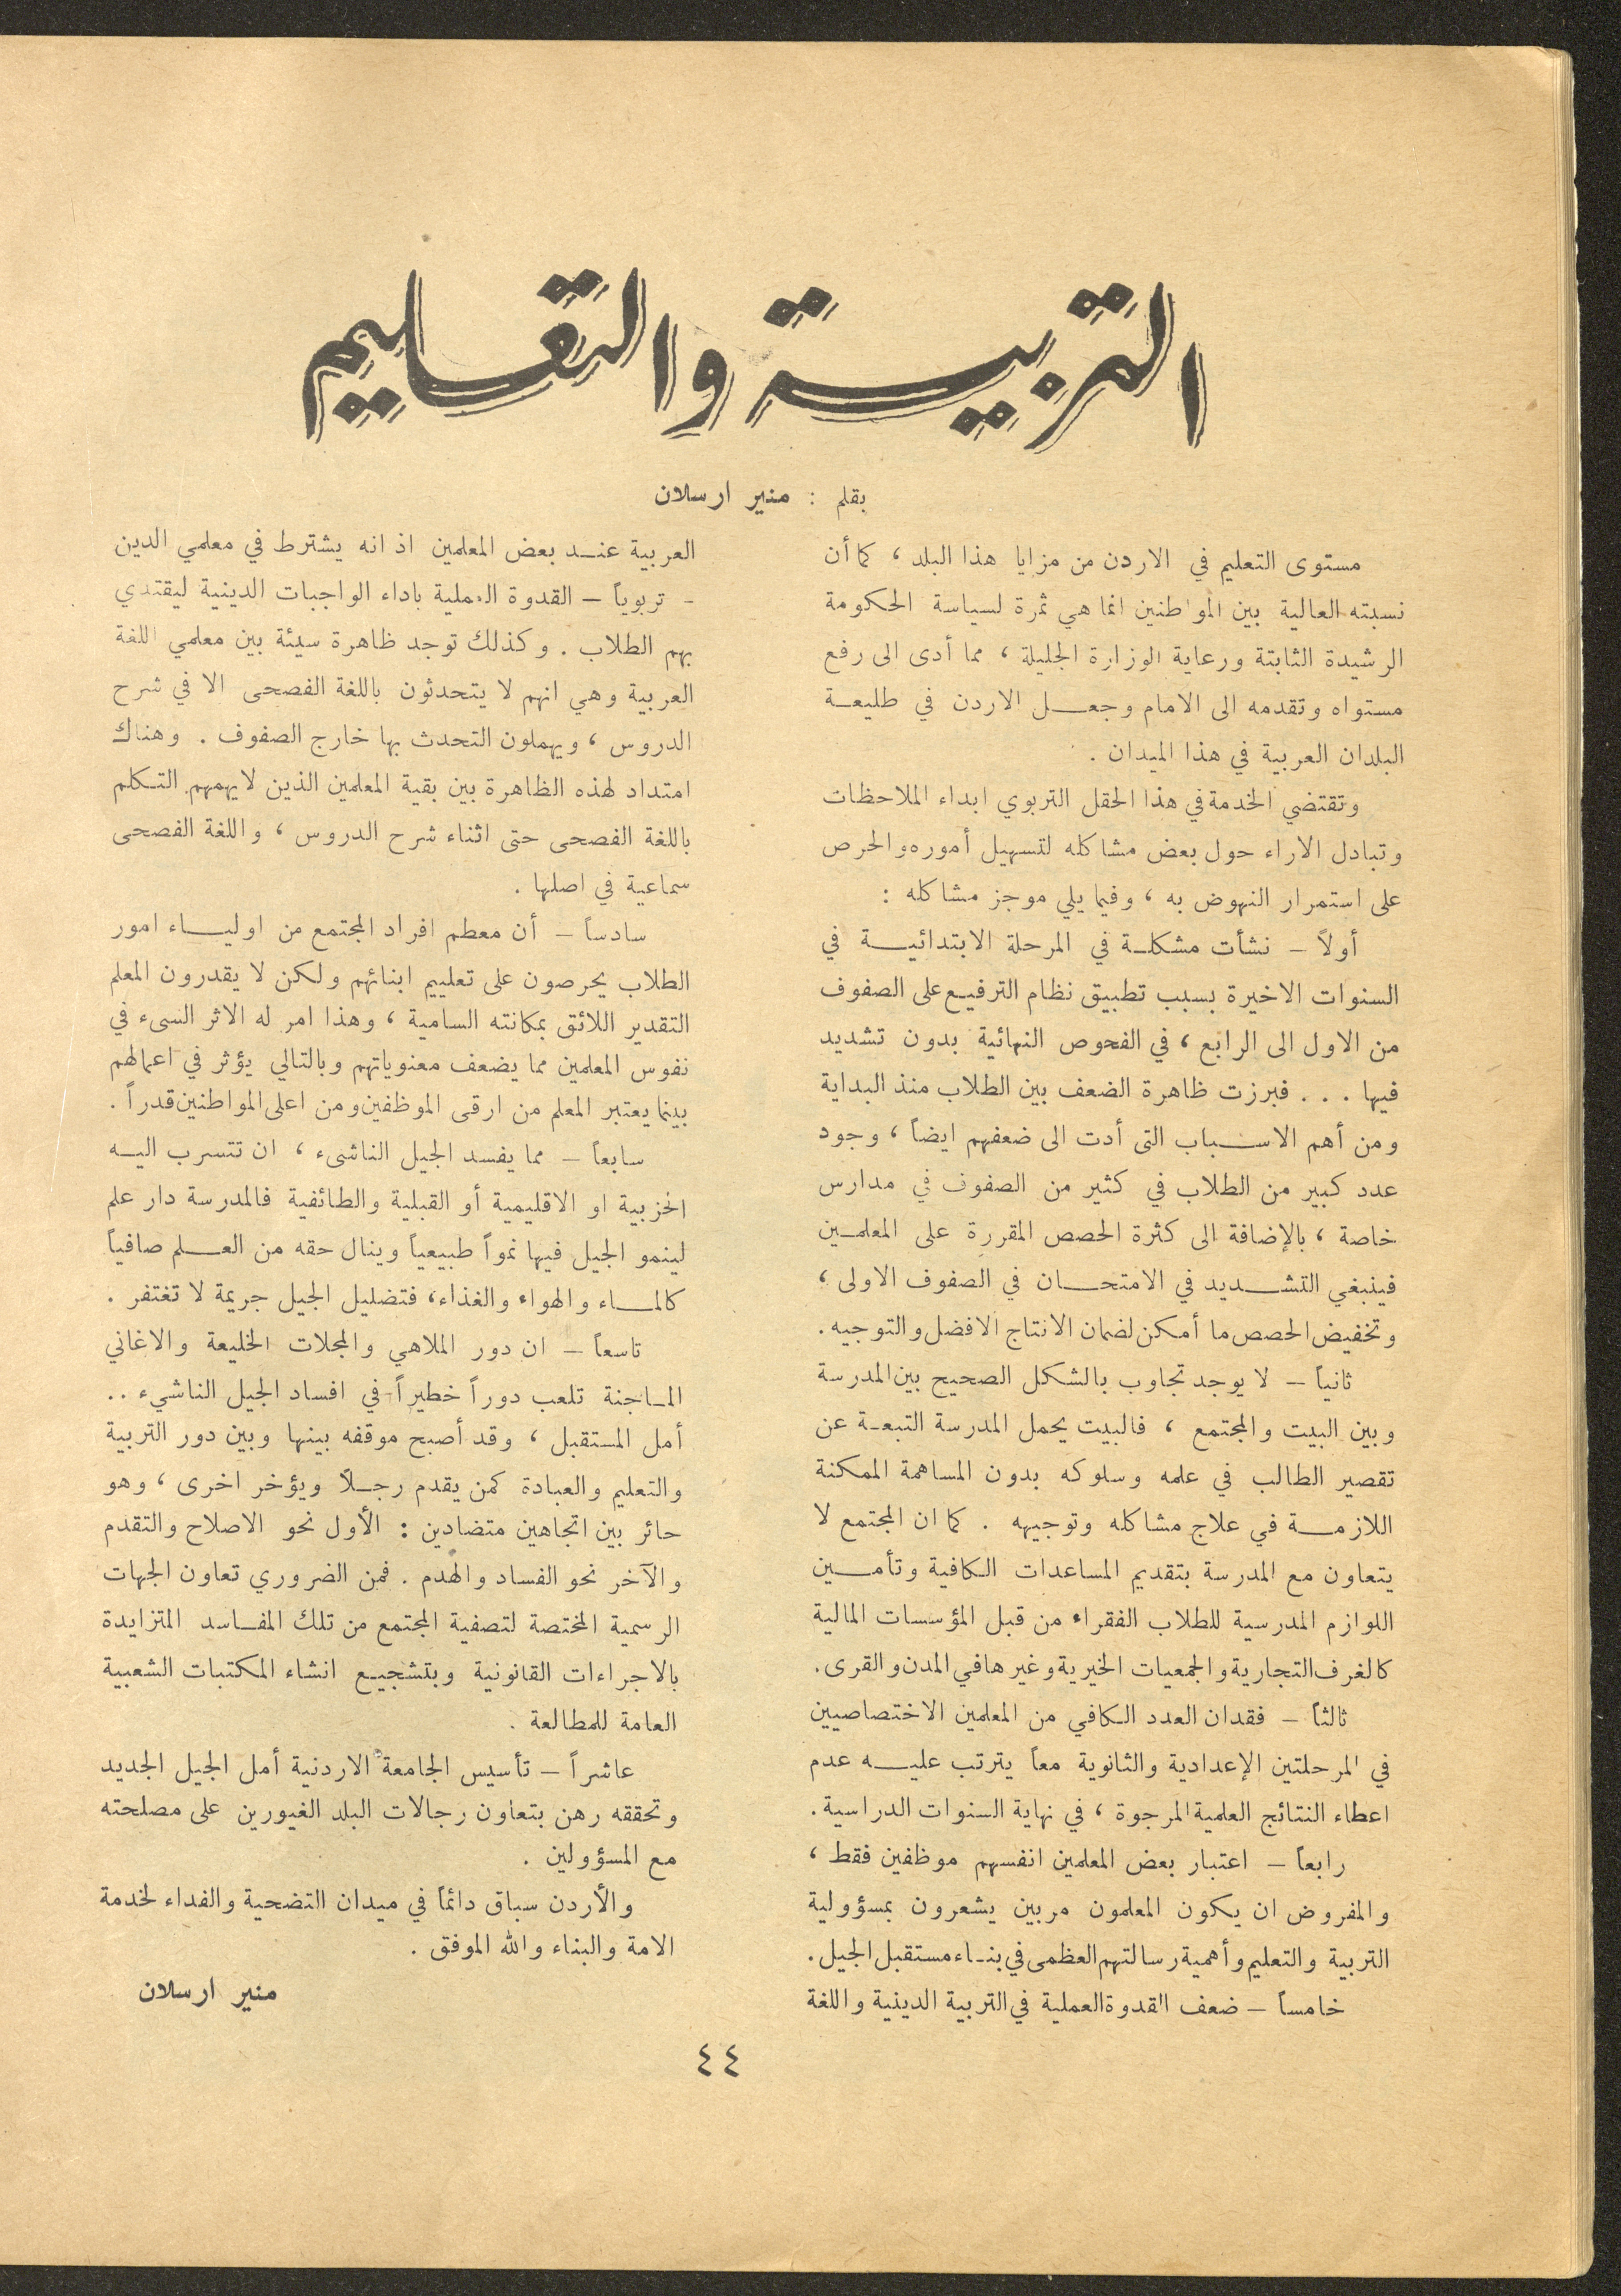 التربية والتعليم
بقلم : منير ارسلان
مستوى التعليم في الاردن من مزايا هذا البلد ، كما أن
نسبته العالية بين المواطنين انما هي ثمرة لسياسة الحكومة
الرشيدة الثابتة ورعاية الوزارة الجليلة ، مما أدى الى رفع
مستواه وتقدمه الى الامام وجعل الاردن في طليعة
البلدان العربية في هذا الميدان .
وتقتضي الخدمة في هذا الحقل التربوي ابداء الملاحظات
وتبادل الاراء حول بعض مشاكله لتسهيل أموره والحرص
على استمرار النهوض به ، وفيما يلي موجز مشاكله :
أولاً – نشأت مشكلة في المرحلة الابتدائية في
السنوات الاخيرة بسبب تطبيق نظام الترفيع على الصفوف
من الاول الى الرابع ، في الفحوص النهائية بدون تشديد
فيها . . . فبرزت ظاهرة الضعف بين الطلاب منذ البداية
ومن أهم الاسباب التى أدت الى ضعفهم ايضاً ، وجود
عدد كبير من الطلاب في كثير من الصفوف في مدارس
خاصة ، بالإضافة الى كثرة الحصص المقررة على المعلمين
فينبغي التشديد في الامتحان في الصفوف الاولى ،
وتخفيض الحصص ما أمكن لضمان الانتاج الافضل والتوجيه.
ثانياً – لا يوجد تجاوب بالشكل الصحيح بين المدرسة
وبين البيت والمجتمع ، فالبيت يحمل المدرسة التبعة عن
تقصير الطالب في علمه وسلوكه بدون المساهمة الممكنة
اللازمة في علاج مشاكله وتوجيهه . كما ان المجتمع لا
يتعاون مع المدرسة بتقديم المساعدات الكافية وتأمين
اللوازم المدرسية للطلاب الفقراء من قبل المؤسسات المالية
كالغرف التجارية والجمعيات الخيرية وغيرها في المدن والقرى.
ثالثاً – فقدان العدد الكافي من المعلمين الاختصاصيين
في المرحلتين الإعدادية والثانوية معاً يترتب عليه عدم
اعطاء النتائج العلمية المرجوة ، في نهاية السنوات الدراسية.
رابعاً – اعتبار بعض المعلمين انفسهم موظفين فقط ،
والمفروض ان يكون المعلمون مربين يشعرون بمسؤولية
التربية والتعليم وأهمية رسالتهم العظمى في بناء مستقبل الجيل.
خامساً – ضعف القدوة العملية في التربية الدينية واللغة
العربية عند بعض المعلمين اذ انه يشترط في معلمي الدين
- تربوياً – القدوة العملية باداء الواجبات الدينية ليقتدي
بهم الطلاب . وكذلك توجد ظاهرة سيئة بين معلمي اللغة
العربية وهي انهم لا يتحدثون باللغة الفصحى الا في شرح
الدروس ، ويهملون التحدث بها خارج الصفوف . وهناك
امتداد لهذه الظاهرة بين بقية المعلمين الذين لا يهمهم التكلم
باللغة الفصحى حتى اثناء شرح الدروس ، واللغة الفصحى
سماعية في اصلها .
سادساً – أن معطم افراد المجتمع من اولياء امور
الطلاب يحرصون على تعلييم ابنائهم ولكن لا يقدرون المعلم
التقدير اللائق بمكانته السامية ، وهذا امر له الاثر السىء في
نفوس المعلمين مما يضعف معنوياتهم وبالتالي يؤثر في اعمالهم
بينما يعتبر المعلم من ارقى الموظفين ومن اعلى المواطنين قدراً .
سابعاً – مما يفسد الجيل الناشىء ، ان تتسرب اليه
الحزبية او الاقليمية أو القبلية والطائفية فالمدرسة دار علم
لينمو الجيل فيها نمواً طبيعياً وينال حقه من العلم صافياً
كالماء والهواء والغذاء ، فتضليل الجيل جريمة لا تغتفر .
تاسعاً – ان دور الملاهي والمجلات الخليعة والاغاني
الماجنة تلعب دوراً خطيراً في افساد الجيل الناشيء ..
أمل المستقبل ، وقد أصبح موقفه بينها وبين دور التربية
والتعليم والعبادة كمن يقدم رجلاً ويؤخر اخرى ، وهو
حائر بين اتجاهين متضادين : الأول نحو الاصلاح والتقدم
والآخر نحو الفساد والهدم . فمن الضروري تعاون الجهات
الرسمية المختصة لتصفية المجتمع من تلك المفاسد المتزايدة
بالاجراءات القانونية وبتشجيع انشاء المكتبات الشعبية
العامة للمطالعة .
عاشراً – تأسيس الجامعة الاردنية أمل الجيل الجديد
وتحققه رهن بتعاون رجالات البلد الغيورين على مصلحته
مع المسؤولين .
والأردن سباق دائماً في ميدان التضحية والفداء لخدمة
الامة والبناء والله الموفق .
منير ارسلان
٤٤